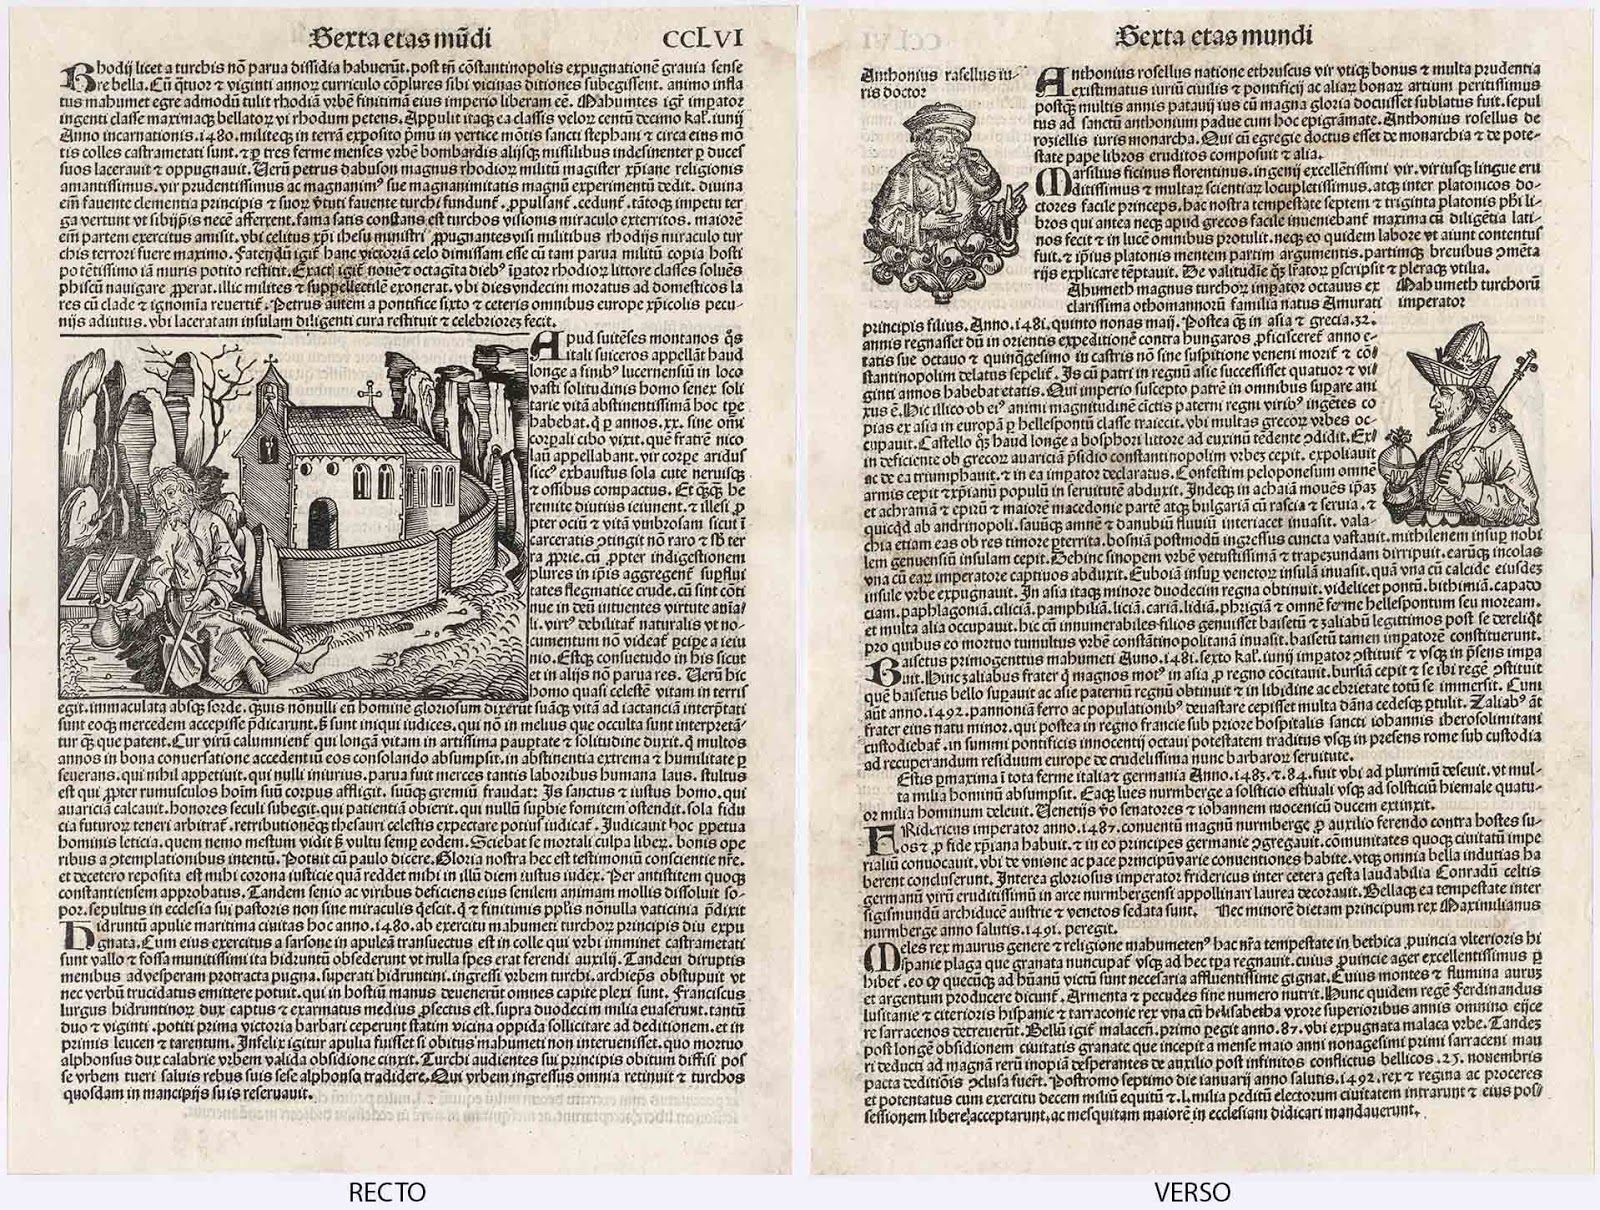 Sexta etas mūdi CCLVI
Rhodij licet a turchis nō parua dissidia habuerūt. post tn̄ cōstantinopolis expugnationē grauia sense
re bella. Cū q̄tuor ⁊ viginti annoꝝ curriculo cōplures sibi vicinas ditiones subegissent. animo infla
tus mahumet egre admodū tulit rhodiā vrbē finitimā eius imperio liberam eē. Mahumtes igr̄ imꝑator
ingenti classe maximaqꝫ bellatoꝝ vi rhodum petens. Appulit itaqꝫ ea classis veloꝝ centū decimo kal. iunij
Anno incarnationis .1480. militeqꝫ in terrā exposito pͥmū in vertice mōtis sancti stephani ⁊ circa eius mō
tis colles castrametati sunt. ⁊ ꝑ tres ferme menses vrbē bombardis alijsqꝫ missilibus indesinenter ꝑ duces
suos lacerauit ⁊ oppugnauit. Uerū petrus dabuson magnus rhodioꝝ militū magister xp̄iane religionis
amantissimus. vir prudentissimus ac magnanimꝰ sue magnanimitatis magnū experimentū dedit. diuina
em̄ fauente clementia principis ⁊ suoꝝ v̓tuti fauente turchi fundunt̄. ꝓpulsant̄. cedunt. tātoqꝫ impetu ter
ga vertunt vt sibijpīs necē afferrent. fama satis constans est turchos visionis miraculo exterritos. maiorē
em̄ partem exercitus amisit. vbi celitus xp̄i ihesu ministri ꝓpugnantes visi militibus rhodijs miraculo tur
chis terrori fuere maximo. Fatendū igit̄ hanc victoriā celo dimissam esse cū tam parua militū copia hosti
po tētissimo iā muris potito restitit. Exact igit̄ nouē ⁊ octagīta diebꝰ īꝑator rhodioꝝ littore classes soluēs
phiscū nauigare ꝓperat. illic milites ⁊ suppellectilē exonerat. vbi dies vndecim moratus ad domesticos la
res cū clade ⁊ ignomīa reuertit̄. Petrus autem a pontifice sixto ⁊ ceteris omnibus europe xp̄icolis pecu-
nijs adiutus. vbi laceratam insulam diligenti cura restituit ⁊ celebriorez fecit.
Apud suitēses montanos q̄s
itali suiceros appellāt haud
longe a finibꝰ lucernensiū in loco
vasti solitudinis homo senex soli
tarie vitā abstinentissimā hoc tp̄e
habebat. q̄ ꝑ annos. xx. sine omī
corꝑali cibo vixit. quē fratrē nico
laū appellabant. vir corpe aridus
siccꝰ exhaustus sola cute neruisqꝫ
⁊ ossibus compactus. Et q̄qꝫ he
remite diutius ieiunent. ⁊ illesi ꝓ
pter ociū ⁊ vitā vmbrosam sicut ī
carceratis ꝯtingit nō raro ⁊ sb̄ ter
ra ꝓprie. cū ꝓpter indigestionem
plures in ip̄is aggregent̄ supflui
tates flegmatice crude. cū sint cōti
nue in deū intuentes virtute aīa
li. virtꝰ debilitat̄ naturalis vt no-
cumentum nō videāt̄ ꝑcipe a ieiu
nio. Estqꝫ consuetudo in his sicut
et in alijs nō parua res. Uerū hic
homo quasi celestē vitam in terris
egit. immaculata absqꝫ sorde. quis nōnulli eū hominē gloriosum dixerūt suāqꝫ vitā ad iactanciam interp̄tati
sunt eoqꝫ mercedem accepisse p̄dicarunt. sꝫ sunt iniqui iudices. qui nō in melius que occulta sunt interpretā-
tur qꝫ que patent. Cur virū calumnient̄ qui longā vitam in artissima pauptate ⁊ solitudine duxit. q̄ multos
annos in bona conuersatione accedentiū eos consolando absumpsit. in abstinentia extrema ⁊ humilitate ꝑ
seuerans. qui nihil appetiuit. qui nulli iniurius. parua fuit merces tantis laboribus humana laus. stultus
est qui ꝓpter rumusculos hoīm suū corpus affligit. suūqꝫ gremiū fraudat: Is sanctus ⁊ iustus homo. qui
auariciā calcauit. honores seculi subegit. qui patientiā obierit. qui nullū supbie fomitem ostendit. sola fidu
cia futuroꝝ teneri arbitrat̄. retributionēqꝫ thesauri celestis expectare potius iudicat̄. Iudicauit hoc ꝑpetua
hominis leticia. quem nemo mestum vidit sꝫ vultu semp eodem. Sciebat se mortali culpa liberꝫ. bonis ope
ribus a ꝯtemplationibus intentū. Potuit cū paulo dicere. Gloria nostra hec est testimoniū conscientie nr̄e.
et decetero reposita est mihi corona iusticie quā reddet mihi in illū diem iustus iudex. Per antistitem quoqꝫ
constantiensem approbatus. Tandem senio ac viribus deficiens eius senilem animam mollis dissoluit so-
por. sepultus in ecclesia sui pastoris non sine miraculis q̄escit. q̄ ⁊ finitimis pplīs nōnulla vaticinia p̄dixit
Hidruntū apulie maritima ciuitas hoc anno .1480. ab exercitu mahumeti turchoꝝ principis diu expu
gnata. Cum eius exercitus a sarsone in apuleā transuectus est in colle qui vrbi imminet castrametati
sunt vallo ⁊ fossa munitissimi ita hidruntū obsederunt vt nulla spes erat ferendi auxilij. Tandem diruptis
menibus aduesperam protracta pugna. superati hidruntini. ingressi vrbem turchi. archiep̄s obstupuit vt
nec verbū trucidatus emittere potuit. qui in hostiū manus deuenerūt omnes capite plexi sunt. Franciscus
lurgus hidruntinoꝝ dux captus ⁊ exarmatus medius ꝓsectus est. supra duodecim milia euaserunt. tantū
duo ⁊ viginti. potiti prima victoria barbari ceperunt statim vicina oppida sollicitare ad deditionem. et in
primis leucen ⁊ tarentum. Infelix igitur apulia fuisset si obitus mahumeti non interuenisset. quo mortuo
alphonsus dux calabrie vrbem valida obsidione cinxit. Turchi audientes sui principis obitum diffisi pos
se vrbem tueri saluis rebus suis sese alphonso tradidere. Qui vrbem ingressus omnia retinuit ⁊ turchos
quosdam in mancipijs suis reseruauit.
RECTO
Sexta etas mundi
Anthonius rasellus iu-
ris doctor
Anthonius rosellus natione ethruscus vir vtiqꝫ bonus ⁊ multa prudentia
existimatus iuriū ciuilis ⁊ pontificij ac aliaꝝ bonaꝝ artium peritissimus
postqꝫ multis annis patauij ius cū magna gloria docuisset sublatus fuit. sepul
tus ad sanctū anthonium padue cum hoc epigrāmate. Anthonius rosellus de
roziellis iuris monarcha. Qui cū egregie doctus esset de monarchia ⁊ de pote-
state pape libros eruditos composuit ⁊ alia.
Marsilius ficinus florentinus. ingenij excellētissimi vir. vtriusqꝫ lingue eru
ditissimus ⁊ multaꝝ scientiaꝝ locupletissimus. atqꝫ inter platonicos do-
ctores facile princeps. hac nostra tempestate septem ⁊ triginta platonis phi li-
bros qui antea neqꝫ apud grecos facile inueniebant̄ maxima cū diligētia lati-
nos fecit ⁊ in lucē omnibus protulit. neqꝫ eo quidem labore vt aiunt contentus
fuit. ⁊ ip̄ius platonis mentem partim argumentis. partimqꝫ breuibus ꝯmēta
rijs explicare tēptauit. De valitudīe q̄s lr̄atoꝝ ꝑscripsit ⁊ pleraqꝫ vtilia.
Mahumeth turchorū
imperator
Ahumeth magnus turchoꝝ imꝑator octauus ex
clarissima othomannorū familia natus Amurati
principis filius. Anno .1481. quinto nonas maij. Postea qꝫ in asia ⁊ grecia .32.
annis regnasset dū in orientis expeditionē contra hungaros ꝓficisceret̄ anno e-
tatis sue octauo ⁊ quinq̄gesimo in castris nō sine suspitione veneni morit̄ ⁊ cō
stantinopolim delatus sepelit̄. Is cū patri in regnū asie successisset quatuor ⁊ vi
ginti annos habebat etatis. Qui imperio suscepto patrē in omnibus supare ani
xus ē. Hic illico ob eiꝰ animi magnitudinē cūctis paterni regni viribꝰ ingētes co
pias ex asia in europā ꝑ hellespontū classe traiecit. vbi multas grecoꝝ vrbes oc-
cupauit. Castello q̄s haud longe a bosphori littore ad euxinū tēdente ꝯdidit. Ex
in deficiente ob grecoꝝ auariciā p̄sidio constantinopolim vrbes cepit. expoliauit
ac de ea triumphauit. ⁊ in ea imꝑator declaratus. Confestim peloponesum omnē
armis cepit ⁊ xp̄ianū populū in seruitutē abduxit. Indeqꝫ in achaiā mouēs ip̄az
et achramā ⁊ epirū ⁊ maiorē macedonie partē atqꝫ bulgariā cū rascia ⁊ seruia. ⁊
quicqd ab andrinopoli. sauūqꝫ amnē ⁊ danubiū fluuiū interiacet inuasit. vala-
chia etiam eas ob res timore ꝑterrita. bosniā postmodū ingressus cuncta vastauit. mithilenem insuꝑ nobi
lem genuensiū insulam cepit. Dehinc sinopem vrbē vetustissimā ⁊ trapezundam dirripuit. earūqꝫ incolas
vna cū eaꝝ imperatore captiuos abduxit. Euboiā insuꝑ venetoꝝ insulā inuasit. quā vna cū calcide eiusdez
insule vrbe expugnauit. In asia itaqꝫ minore duodecim regna obtinuit. videlicet pontū. bithimiā. capado
ciam. paphlagoniā. ciliciā. pamphiliā. liciā. cariā. lidiā. phrigiā ⁊ omnē ferme hellespontum seu moream.
et multa alia occupauit. hic cū innumerabiles filios genuisset baisetū ⁊ zaliabū legittimos post se dereliq̄t
pro quibus eo mortuo tumultus vrbē constātinopolitanā inuasit. baisetū tamen imꝑatorē constituerunt.
Baisetus primogenitus mahumeti Anno .1481. sexto kal. iunij imꝑator ꝯstituit̄ ⁊ vsqꝫ in p̄sens imꝑa
uit. Hinc zaliabus frater q̄ magnos motꝰ in asia ꝓ regno cōcitauit. bursiā cepit ⁊ se ibi regē ꝯstituit
quē baisetus bello supauit ac asie paternū regnū obtinuit ⁊ in libidine ac ebrietate totū se immersit. Cum
aūt anno .1492. pannoniā ferro ac populationibꝰ deuastare cepisset multa dāna cedesqꝫ ꝑtulit. Zaliabꝰ āt
frater eius natu minor. qui postea in regno francie sub priore hospitalis sancti iohannis iherosolimitani
custodiebat̄. in summi pontificis innocentij octaui potestatem traditus vsqꝫ in presens rome sub custodia
ad recuperandum residuum europe de crudelissima nunc barbaroꝝ seruitute.
Estis ꝑmaxima ī tota ferme italia ⁊ germania Anno .1483. ⁊ .84. fuit vbi ad plurimū deseuit. vt mul-
ta milia hominū absumpsit. Eaqꝫ lues nurmberge a solsticio estiuali vsqꝫ ad solsticiū hiemale quatu-
or milia hominum deleuit. Uenetijs v̓o senatores ⁊ iohannem mocenicū ducem extinxit.
FRidericus imperator anno .1487. conuentū magnū nurmberge ꝓ auxilio ferendo contra hostes su-
os ⁊ ꝓ fide xp̄iana habuit. ⁊ in eo principes germanie ꝯgregauit. cōmunitates quoqꝫ ciuitatū impe
rialiū conuocauit. vbi de vnione ac pace principū varie conuentiones habite. vtqꝫ omnia bella indutias ha
berent concluserunt. Interea gloriosus imperator fridericus inter cetera gesta laudabilia Conradū celtis
germanū virū eruditissimū in arce nurmbergensi appollinari laurea decorauit. Bellaqꝫ ea tempestate inter
sigismundū archiducē austrie ⁊ venetos sedata sunt. Nec minorē dietam principum rex Maximilianus
nurmberge anno salutis .1491. peregit.
Meles rex maurus genere ⁊ religione mahumetenꝰ hac nr̄a tempestate in bethica ꝓuincia vlterioris hi
spanie plaga que granata nuncupat̄ vsqꝫ ad hec tꝑa regnauit. cuius ꝓuincie ager excellentissimus ꝑ
hibet̄. eo ꝙ quecūqꝫ ad hūanū victū sunt necesaria affluentissime gignat. Cuius montes ⁊ flumina auruz
et argentum producere dicunt̄. Armenta ⁊ pecudes sine numero nutrit. Hunc quidem regē Ferdinandus
lusitanie ⁊ citerioris hispanie ⁊ tarraconie rex vna cū helisabetha vxore superioribus annis omnino eijce
re sarracenos decreuerūt. Bellū igit̄ malacen. primo ꝑegit anno .87. vbi expugnata malaca vrbe. Tandez
post longē obsidionem ciuitatis granate que incepit a mense maio anni nonagesimi primi sarraceni mau
ri deducti ad magnā rerū inopiā desperantes de auxilio post infinitos conflictus bellicos .25. nouembris
pacta deditiōis ꝯclusa fuerūt. Postromo septimo die ianuarij anno salutis .1492. rex ⁊ regina ac proceres
et potentatus cum exercitu decem miliū equitū ⁊ .l. milia peditū electorum ciuitatem intrarunt ⁊ eius pos
sessionem libere acceptarunt. ac mesquitam maiorē in ecclesiam didicari mandauerunt.
VERSO